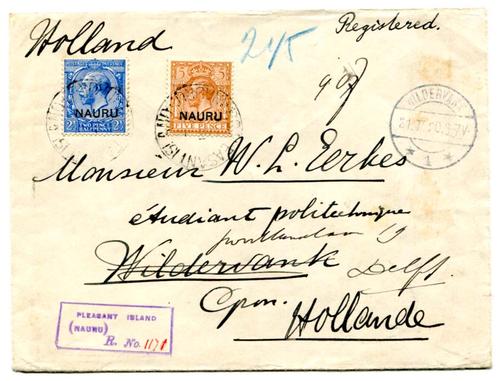 Holland
Registered.
245
NAURU
TWO PENCE
HALFPENNY
NAURU
FIVE PENCE
WILDERVANK
1
Monsieur W. L. Eerkes
étudiant politechnique
19
Wildervank
Delft.
Hollande
PLEASANT ISLAND
(NAURU)
R. No. 1171